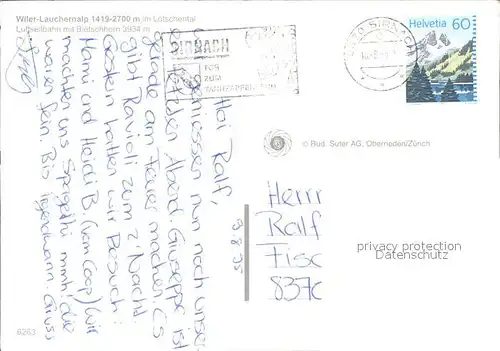 Wiler-Lauchernalp 1419-2700 m im Lötschental
Luftseilbahn mit Bietschhorn 3934 m
Helvetia 60
SIRNACH
SIRNACH
FÜR
ZUM
© Rud. Suter AG, Oberrieden/Zürich
Hoi Ralf,
geniessen nun noch unser
letzten Abend. Giuseppe ist
gerade am Feuer machen. Es
gibt Ravioli zum z'Nacht
Gestern hatten wir Besuch:
Mami und Heidi B. (vom Coop) Wir
machten uns Spagetti mmh! die
waren fein. Bis irgendwann Gruss
9.8.95
Herrn
Ralf
Fisc
8370
privacy protection
Datenschutz
6263